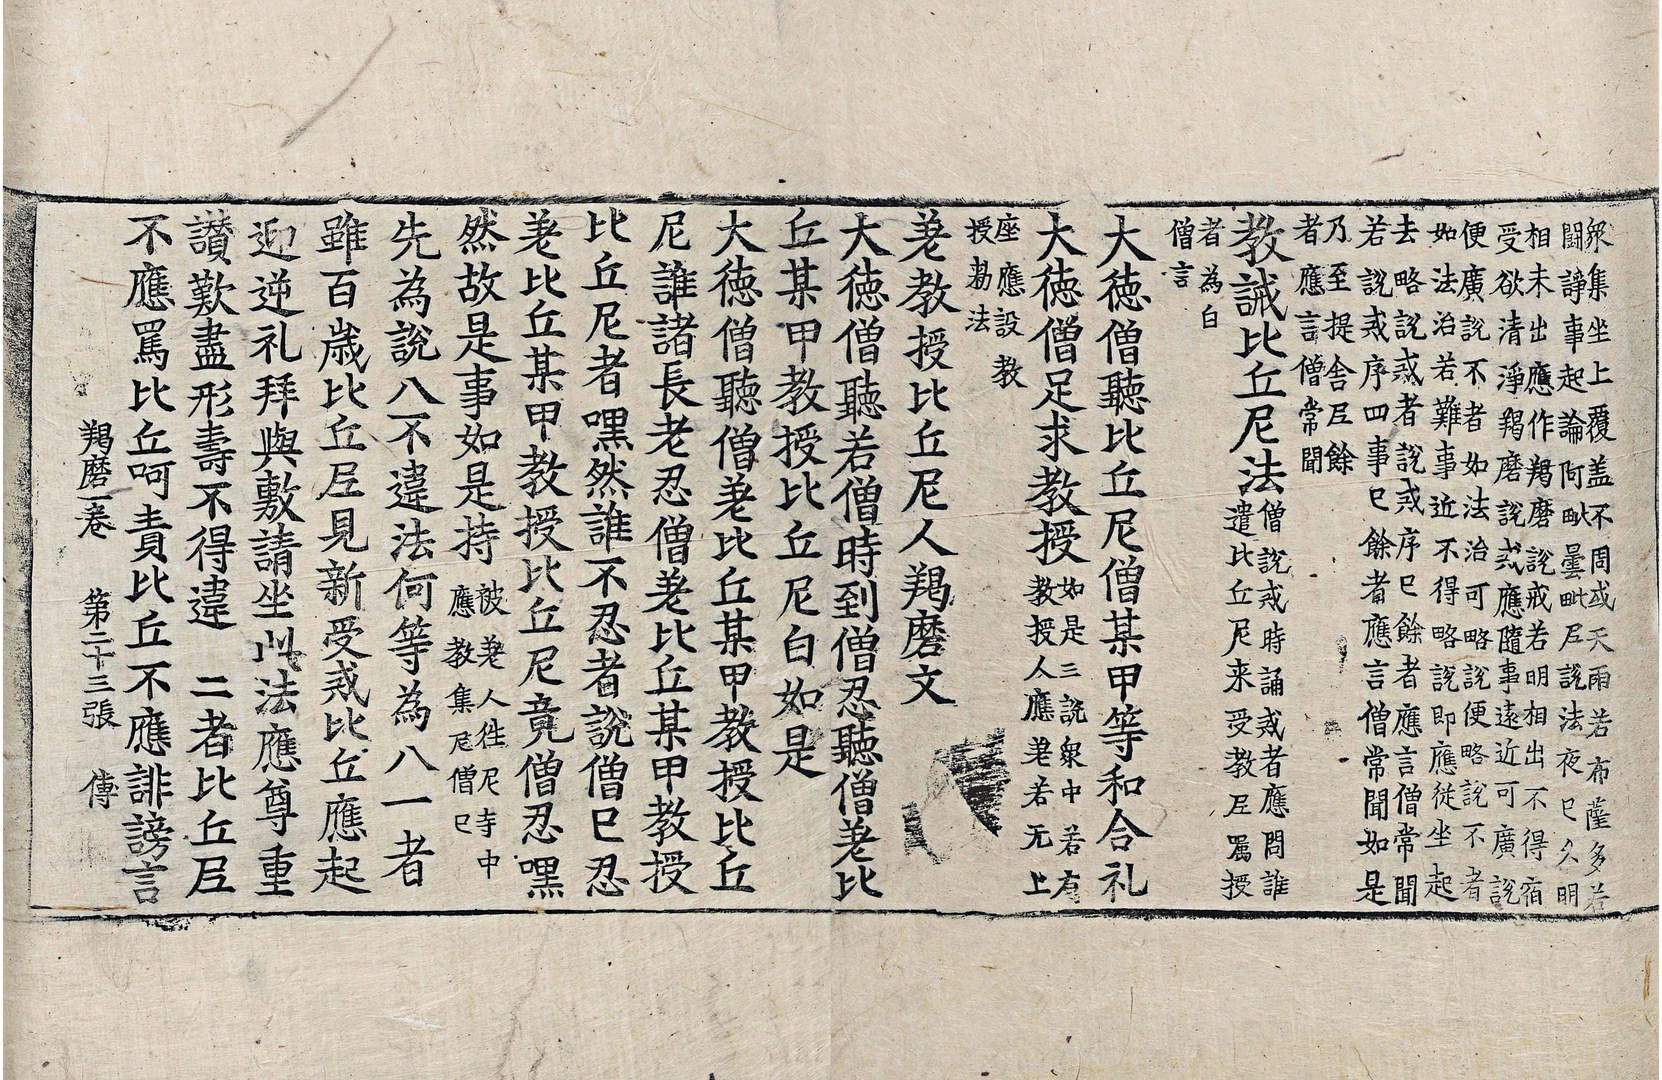 衆集坐上覆盖不周或天雨若布薩多若
鬪諍事起論阿毗曇毗尼說法夜已久明
相未出應作羯磨說戒若明相出不得宿
受欲清淨羯磨說戒應隨事遠近可廣說
便廣說不者如法治可略說便略說不者
如法治若難事近不得略說即應從坐起
去略說戒者說戒序已餘者應言僧常聞
若說戒序四事已餘者應言僧常聞如是
乃至提舍尼餘
者應言僧常聞
教誡比丘尼法僧說戒時誦戒者應問誰
遣比丘尼来受教尼囑授
者為白
僧言
大徳僧聽比丘尼僧某甲等和合礼
大徳僧足求教授如是三說衆中若有
教授人應差若无上
座應設教
授勑法
差教授比丘尼人羯磨文
大徳僧聽若僧時到僧忍聽僧差比
丘某甲教授比丘尼白如是
大徳僧聽僧差比丘某甲教授比丘
尼誰諸長老忍僧差比丘某甲教授
比丘尼者嘿然誰不忍者說僧已忍
差比丘某甲教授比丘尼竟僧忍嘿
然故是事如是持被差人往尼寺中
應教集尼僧已
先為說八不違法何等為八一者
雖百歳比丘尼見新受戒比丘應起
迎逆礼拜與敷請坐此法應尊重
讃歎盡形壽不得違 二者比丘尼
不應罵比丘呵責比丘不應誹謗言
羯磨一卷 第二十三張 傳